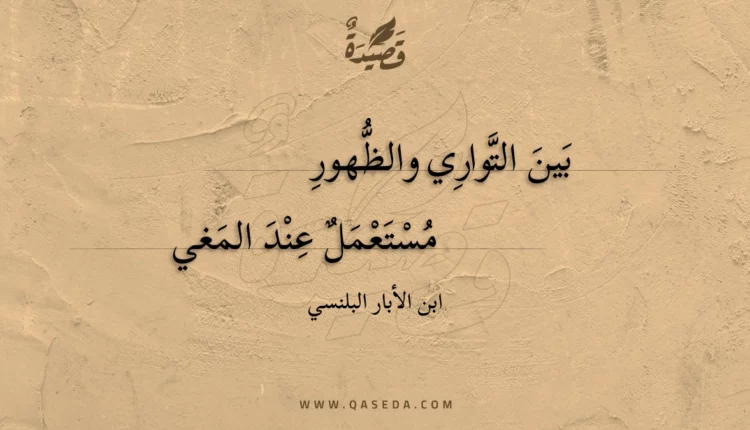 قَصِيدَةٌ
بَينَ التَّوارِي والظُّهورِ
مُسْتَعْمَلٌ عِنْدَ المَغي
ابن الأبار البلنسي
WWW.QASEDA.COM